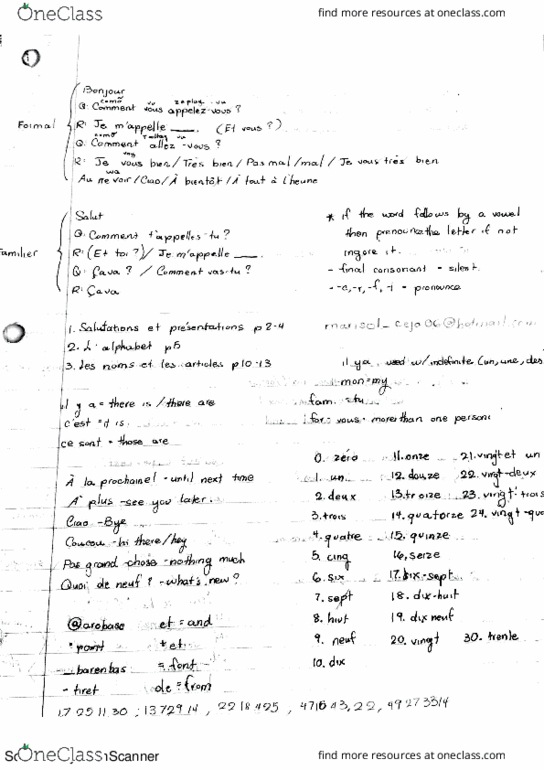 OneClass find more resources at oneclass.com
1
Bonjour
como vu zaplay - vu
Q: Comment vous appelez-vous ?
Formal
R: Je m'appelle ___. (Et vous ?)
Q: Comment allez-vous ?
R: Je vous bien / Très bien / Pas mal / mal / Je vous très bien
Au revoir / Ciao / À bientôt / À tout à l'heune
Salut
Q: Comment t'appelles-tu ?
Familier
R: (Et toi ?) / Je m'appelle ___.
Q: Ça va ? / Comment vas-tu ?
R: Ça va
* if the word follows by a vowel
then pronounce the letter if not
ingore it.
- final consonant = silent
- -c, -r, -f, -l - pronounce
1. Salutations et présentations p 2-4
2. L'alphabet p5
3. Les noms et les articles p10-13
marisol_cejo06@hotmail.com
il ya used w/ indefinite (un, une, des
mon = my
il y a = there is / there are
fam. = tu
c'est = it is
for: vous - more than one person
ce sont = those are
À la prochaine! - until next time
A plus - see you later.
Ciao - Bye
Coucou - hi there/hey
Pas grand chose - nothing much
Quoi de neuf ? - what's new?
0. zéro 11. onze 21. vingt et un
1. un 12. douze 22. vingt-deux
2. deux 13. treize 23. vingt-trois
3. trois 14. quatorze 24. vingt-qua
4. quatre 15. quinze
5. cinq 16. seize
6. six 17. dix-sept
7. sept 18. dix-huit
8. huit 19. dix neuf
9. neuf 20. vingt 30. trente
10. dix
@ arobase et = and
• point + et
_ barenbas = font
- tiret de = from
17 25 11 30 ; 13 7 29 14 , 22 18 4 25 ,
OneClass Scanner find more resources at oneclass.com